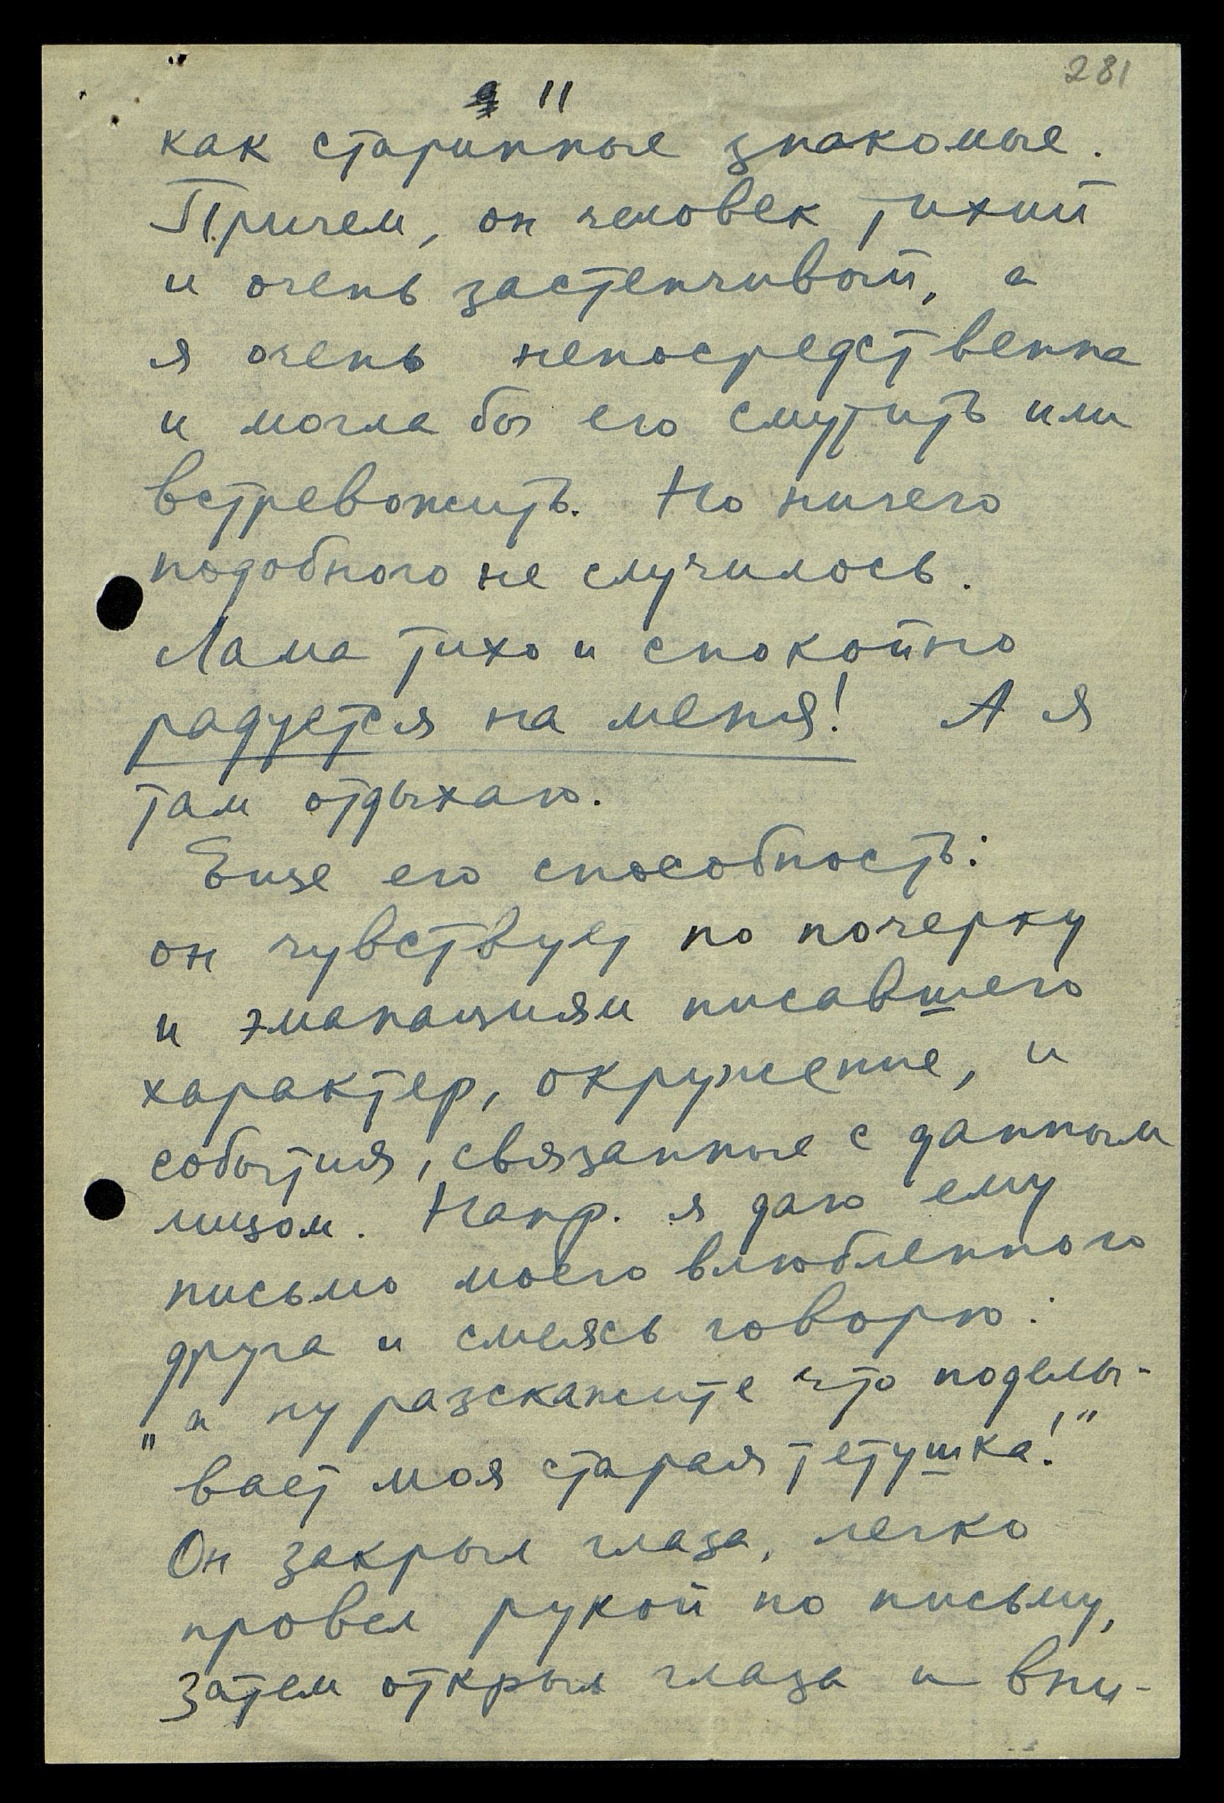 281
11
как старинные знакомые.
Причем, он человек тихий
и очень застенчивый, а
я очень непосредственна
и могла бы его смутить или
встревожить. Но ничего
подобного не случилось.
Лама тихо и спокойно
радуется на меня! А я
там отдыхаю.
Еще его способность:
он чувствует по почерку
и эманациям писавшего
характер, окружение, и
события, связанные с данным
лицом. Напр. я даю ему
письмо моего влюбленного
друга и смеясь говорю:
"а ну разскажите что поделы-
вает моя старая тетушка!"
Он закрыл глаза, легко
провел рукой по письму,
затем открыл глаза и вни-